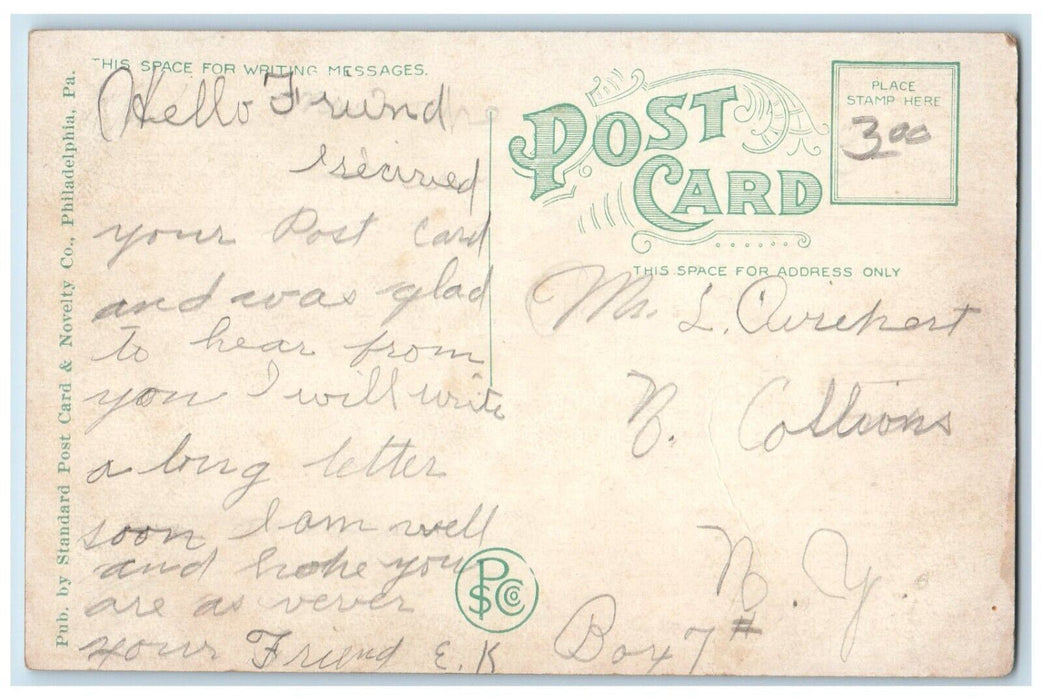 Pub. by Standard Post Card & Novelty Co., Philadelphia, Pa.
THIS SPACE FOR WRITING MESSAGES.
Hello Friend
I recieved
your Post Card
and was glad
to hear from
you I will write
a long letter
soon I am well
and hope you
are as
your Friend E. K
POST
CARD
PLACE
STAMP HERE
3.00
THIS SPACE FOR ADDRESS ONLY
L.
N.
N. Y.
Box 7 #
PS Co